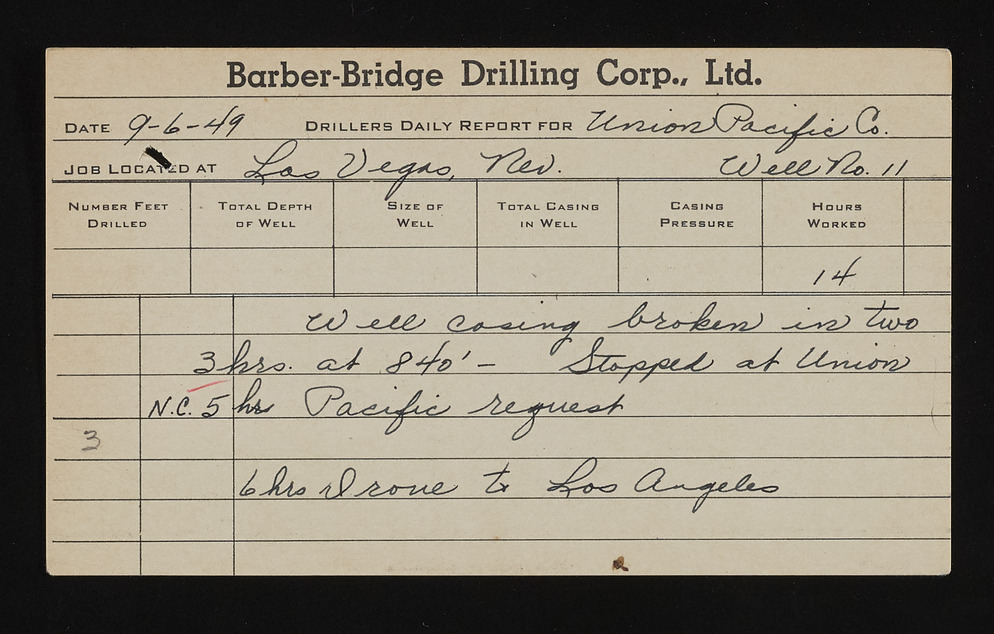 Barber-Bridge Drilling Corp., Ltd.
DATE 9-6-49 DRILLERS DAILY REPORT FOR Union Pacific Co.
JOB LOCATED AT Las Vegas, Nev. Well No. 11
NUMBER FEET DRILLED TOTAL DEPTH OF WELL SIZE OF WELL TOTAL CASING IN WELL CASING PRESSURE HOURS WORKED
14
Well casing broken in two
3 hrs. at 840' - Stopped at Union
N.C. 5 hrs Pacific request
3
6 hrs Drove to Los Angeles